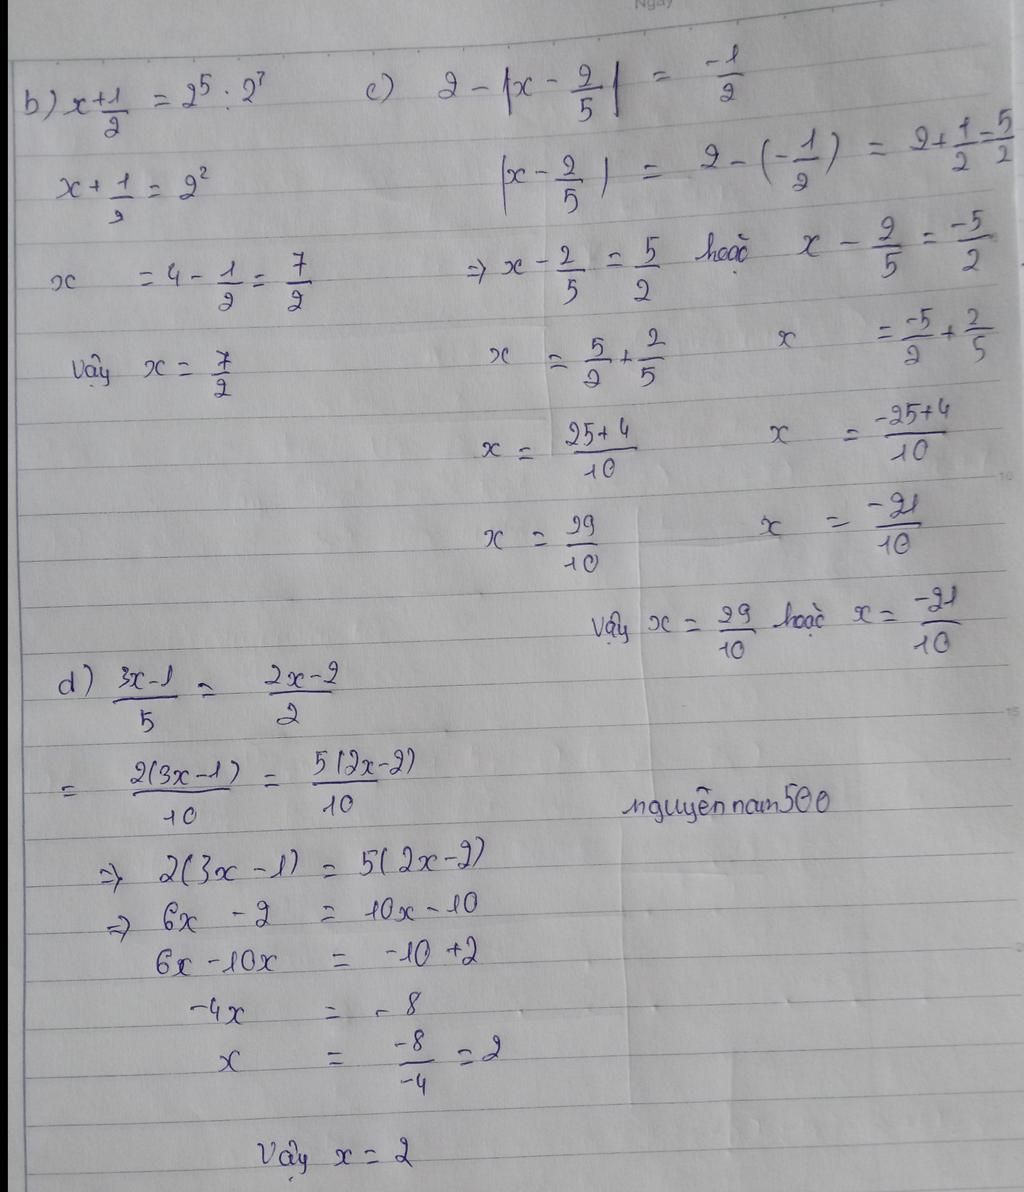 Ngày
b) x + 1/2 = 2^5 : 2^7
x + 1/2 = 2^2
x = 4 - 1/2 = 7/2
Vậy x = 7/2
c) 2 - |x - 2/5| = -1/2
|x - 2/5| = 2 - (-1/2) = 2 + 1/2 = 5/2
=> x - 2/5 = 5/2 hoặc x - 2/5 = -5/2
x = 5/2 + 2/5 x = -5/2 + 2/5
x = 25+4/10 x = -25+4/10
x = 29/10 x = -21/10
Vậy x = 29/10 hoặc x = -21/10
d) 3x-1/5 = 2x-2/2
= 2(3x-1)/10 = 5(2x-2)/10
=> 2(3x - 1) = 5(2x - 2)
=> 6x - 2 = 10x - 10
6x - 10x = -10 + 2
-4x = - 8
x = -8/-4 = 2
Vậy x = 2
nguyênnam500